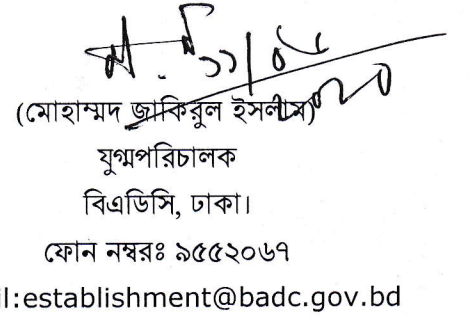 (মোহাম্মদ জাকিরুল ইসলাম)
যুগ্মপরিচালক
বিএডিসি, ঢাকা।
ফোন নম্বরঃ ৯৫৫২০৬৭
il:establishment@badc.gov.bd